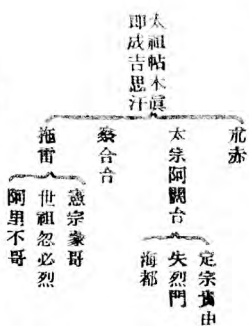 太祖帖木眞
即成吉思汗
朮赤
太宗阿闊台
察合台
拖雷
定宗貴由
失烈門
海都
憲宗蒙哥
世祖忽必烈
阿里不哥